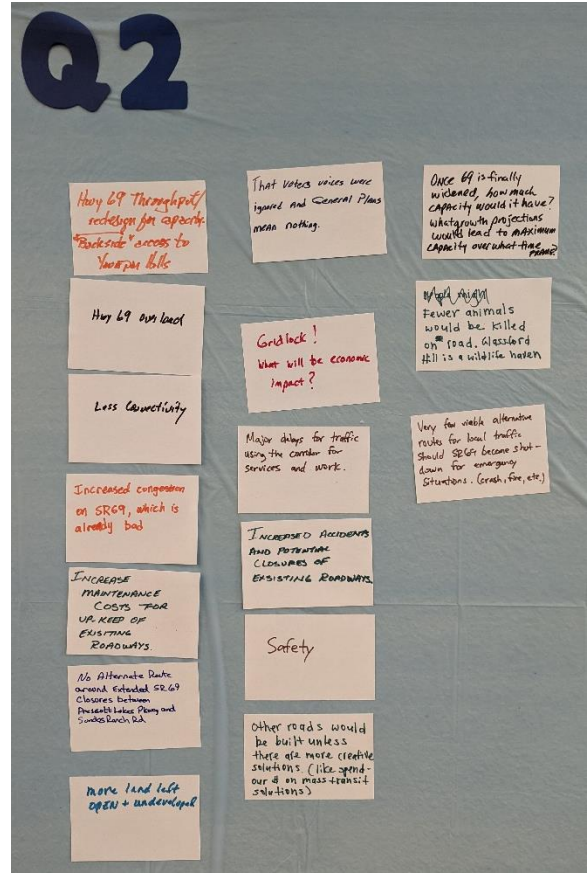 Q2
Hwy 69 Throughput/
redesign for capacity.
"Backside" access to
Yavapai Hills
Hwy 69 overload
Less Connectivity
Increased congestion
on SR69, which is
already bad
INCREASE
MAINTENANCE
COSTS FOR
UP-KEEP OF
EXISITING
ROADWAYS.
No Alternate Route
around Extended SR69
Closures between
Prescott Lakes Pkwy and
Sundog Ranch Rd
more land left
OPEN + undeveloped
That voters voices were
ignored and General Plans
mean nothing.
Gridlock!
What will be economic
impact?
Major delays for traffic
using the corridor for
services and work.
INCREASED ACCIDENTS
AND POTENTIAL
CLOSURES OF
EXSISTING ROADWAYS.
Safety
Other roads would
be built unless
there are more creative
solutions. (like spend-
our $ on mass transit
solutions)
ONCE 69 is finally
widened, how much
capacity would it have?
what growth projections
would lead to MAXIMUM
capacity over what time
FRAME?
Fewer animals
would be killed
on road. Glassford
Hill is a wildlife haven
Very few viable alternative
routes for local traffic
should SR69 become shut-
down for emergency
situations. (crash, fire, etc.)